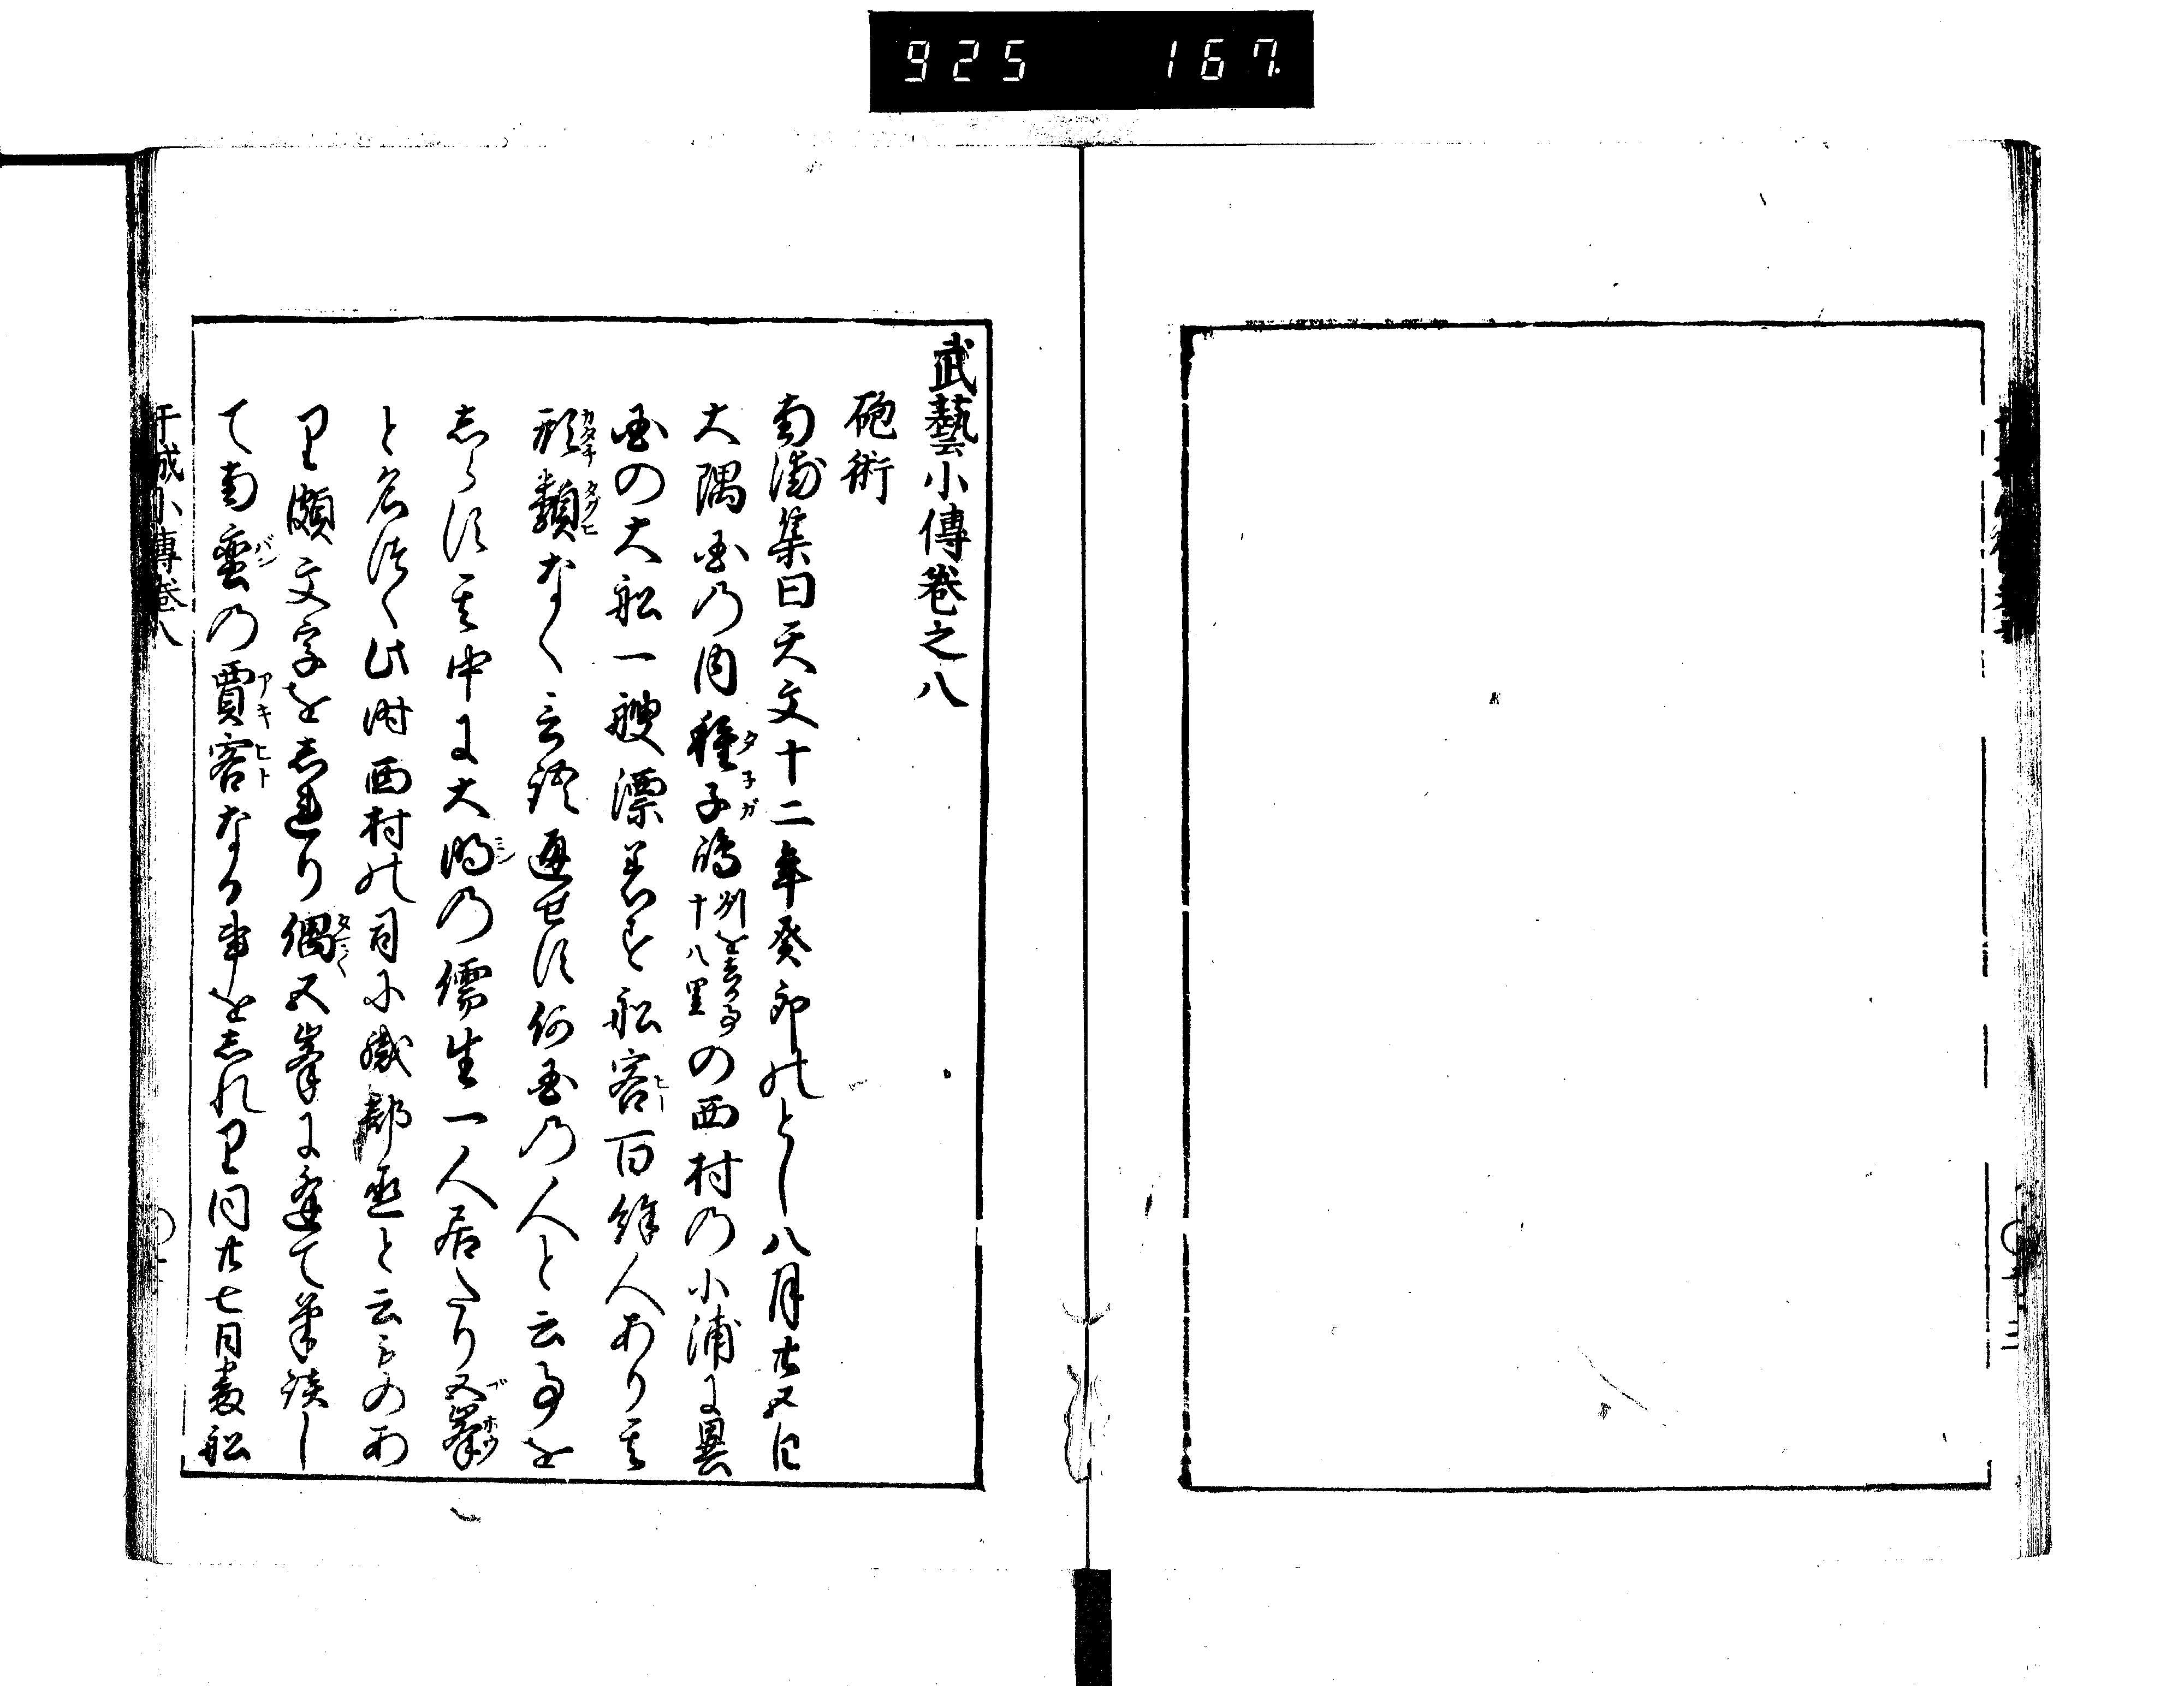 925 167
武藝小傳巻之八
砲術
南浦集曰天文十二年癸卯のとし八月廿五日
大隅国の内種子嶋州を去る事十八里の西村の小浦に異
国の大船一艘漂着す船客百餘人あり其
形類なく言語通せす何国の人と云事を
しらす其中に大明の儒生一人居たり五峯
と名つく此时西村の司に織部丞と云ものあ
り頗文字をしれり偶五峯に逢て筆談し
て南蛮の賈客なる事をしれり同廿七日表船
干城小傳巻八